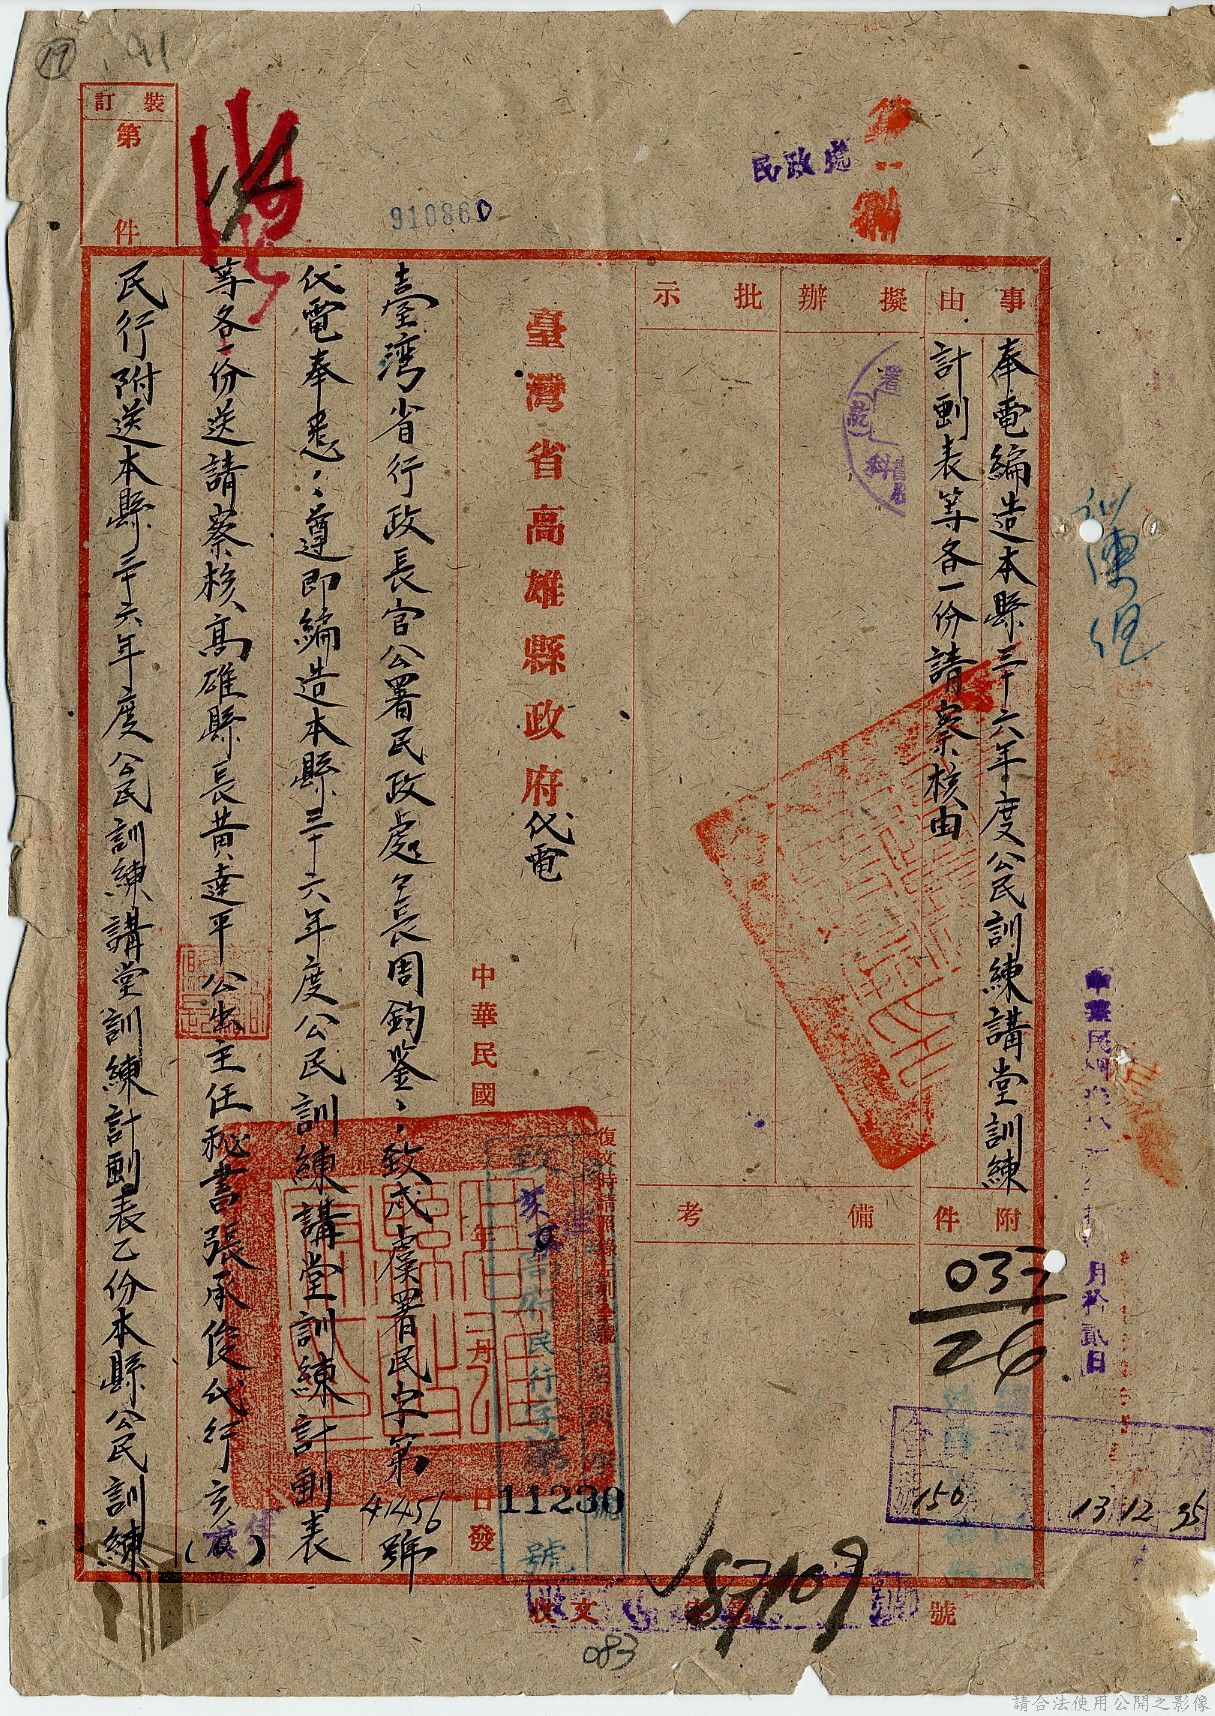 第一科
民政處
910860
17
91
裝訂
第
件
事由
奉電編造本縣三十六年度公民訓練講堂訓練
計劃表等各一份請察核由
附件
037
26
擬辦
批示
備考
臺灣省高雄縣政府代電
中華民國
年
月
日發
致
府民行字第
11230
號
臺灣省行政長官公署民政處處長周鈞鑒、致戌虞署民字第41456號
代電奉悉、遵即編造本縣三十六年度公民訓練講堂訓練計劃表
等各一份送請察核高雄縣長黃達平公出主任秘書張承俊代行亥(虞)
民行附送本縣三十六年度公民訓練講堂訓練計劃表乙份本縣公民訓練
訓練組
月拾貳日
150
13 12 35
收文
字第
87109
號
083
請合法使用公開之影像